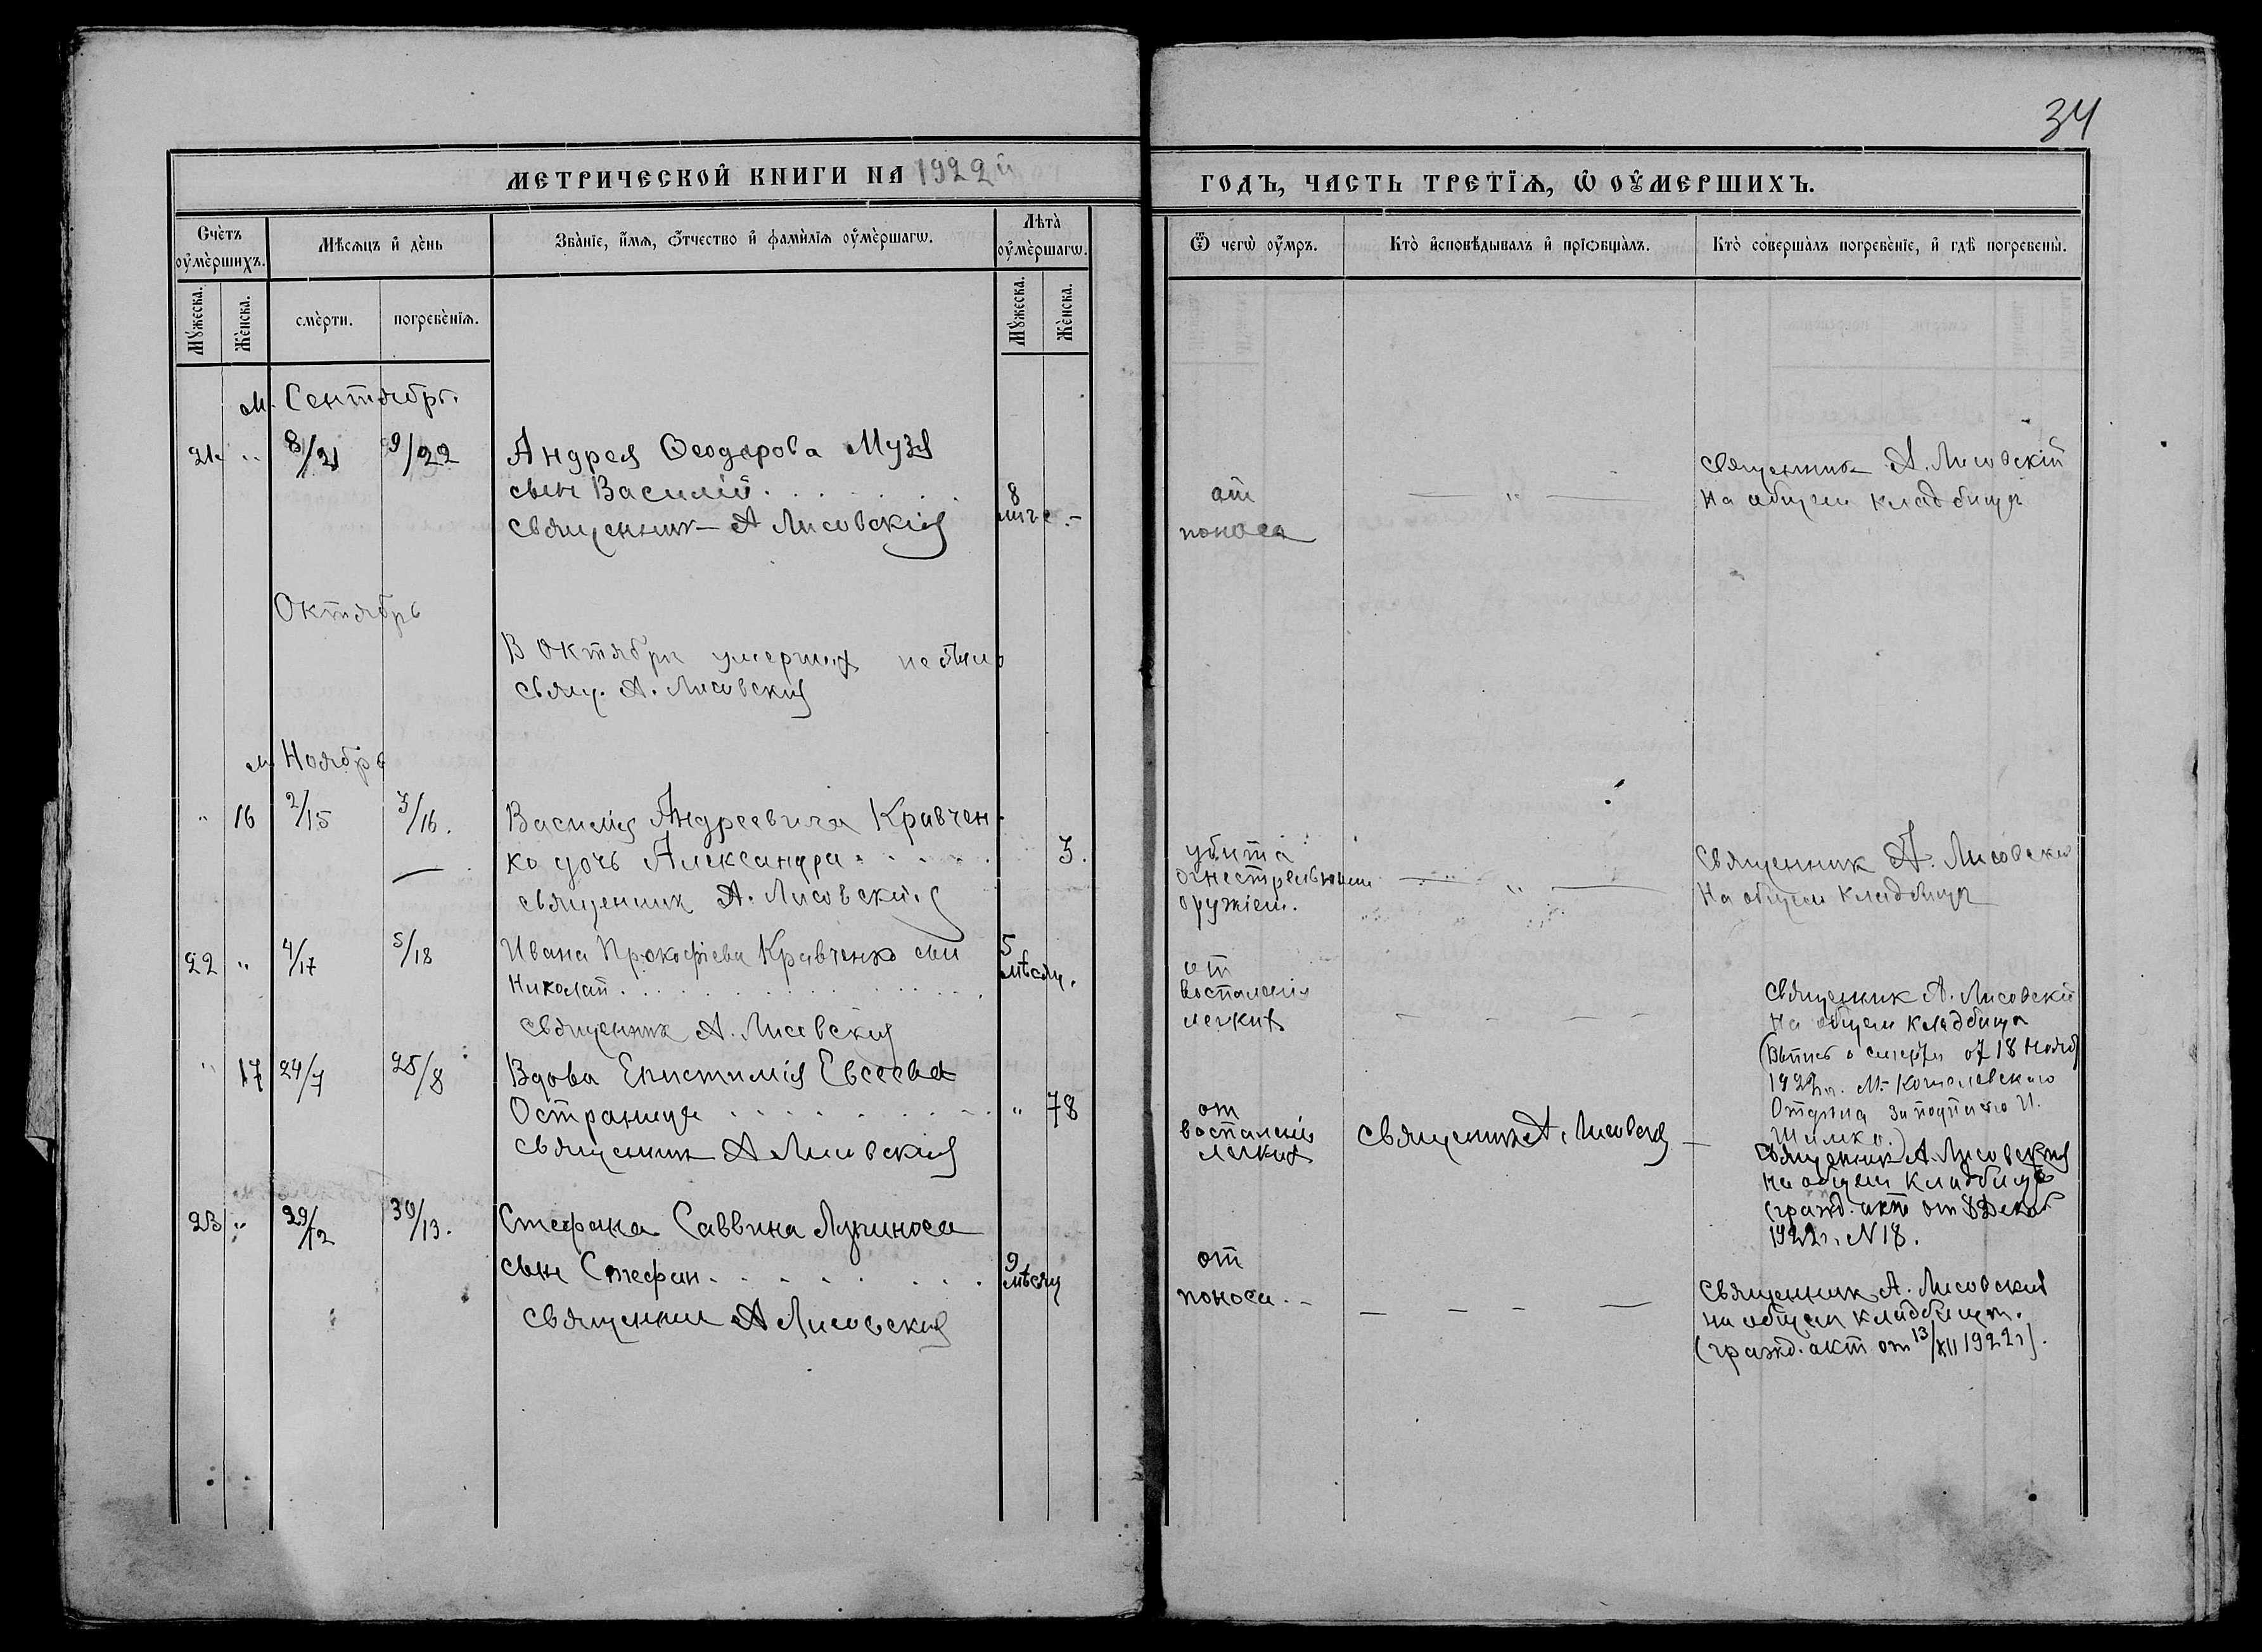 34
МЕТРИЧЕСКОЙ КНИГИ НА 1922 й
ГОДЪ, ЧАСТЬ ТРЕТІѦ, Ѡ ОУМЕРШИХЪ.
Счетъ оумершихъ.
Мѣсяцъ и день
Званіе, имя, отчество и фамилія оумершагѡ.
Лѣта оумершагѡ.
Ѿ чегѡ оумръ.
Кто исповѣдывалъ и пріѡбщалъ.
Кто совершалъ погребеніе, и гдѣ погребены.
Мужеска.
Женска.
смерти.
погребенія.
Мужеска.
Женска.
м. Сентябрь.
21. " 8/21 9/22 Андрея Ѳеодорова Музя
сын Василій. 8
священник А Лисовскій
от
поноса
священник А. Лисовскій
на общем кладбищѣ
Октябрь
В Октябрѣ умерших не было
свящ. А. Лисовскій
м Ноябрь
" 16 2/15 3/16. Василія Андреевича Кравчен-
ко дочь Александра 3.
священник А. Лисовскій
убита
огнестрельным
оружіем.
священник А. Лисовскій
на общем кладбищѣ
22 " 4/17 5/18 Ивана Прокофіева Кравченко сын 5
Николай. мѣсяц.
священник А. Лисовскій
от
воспаленія
легких
священник А. Лисовскій
на общем кладбищѣ
(Выпись о смерти от 18 Нояб
1922 г. М-
Отдѣла за подписью И.
Шимко.)
" 17 24/7 25/8 Вдова Епистимія Евсеева
Остраница " 78
священник А Лисовскій
от
воспаленія
легких
священник А. Лисовскій
священник А. Лисовскій
на общем кладбищѣ
(гражд. акт от 8 Декаб
1922 г. N 18.
23 " 29/12 30/13. Стефана Саввина Лучиноса
сын Стефан. 9 мѣсяц
священник А Лисовскій
от
поноса.
священник А. Лисовскій
на общем кладбищѣ.
(гражд. акт от 13/XII 1922 г).